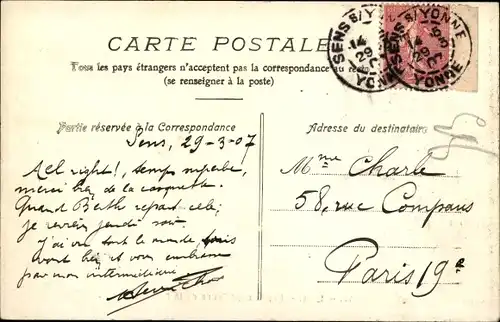 CARTE POSTALE
SENS S/ YONNE
YONNE
SENS S/ YONNE
YONNE
Tous les pays étrangers n'acceptent pas la correspondance au recto
(se renseigner à la poste)
Partie réservée à la Correspondance
Adresse du destinataire
Sens, 29-3-07
All right!, temps superbe,
merci bien de la casquette.
Quand Berthe repart celà;
je revins jeudi soir.
J'ai vu tout le monde, tous
vont bien et vous embrassent
par mon intermédiaire
Mme Charle
58, rue Compans
Paris 19e